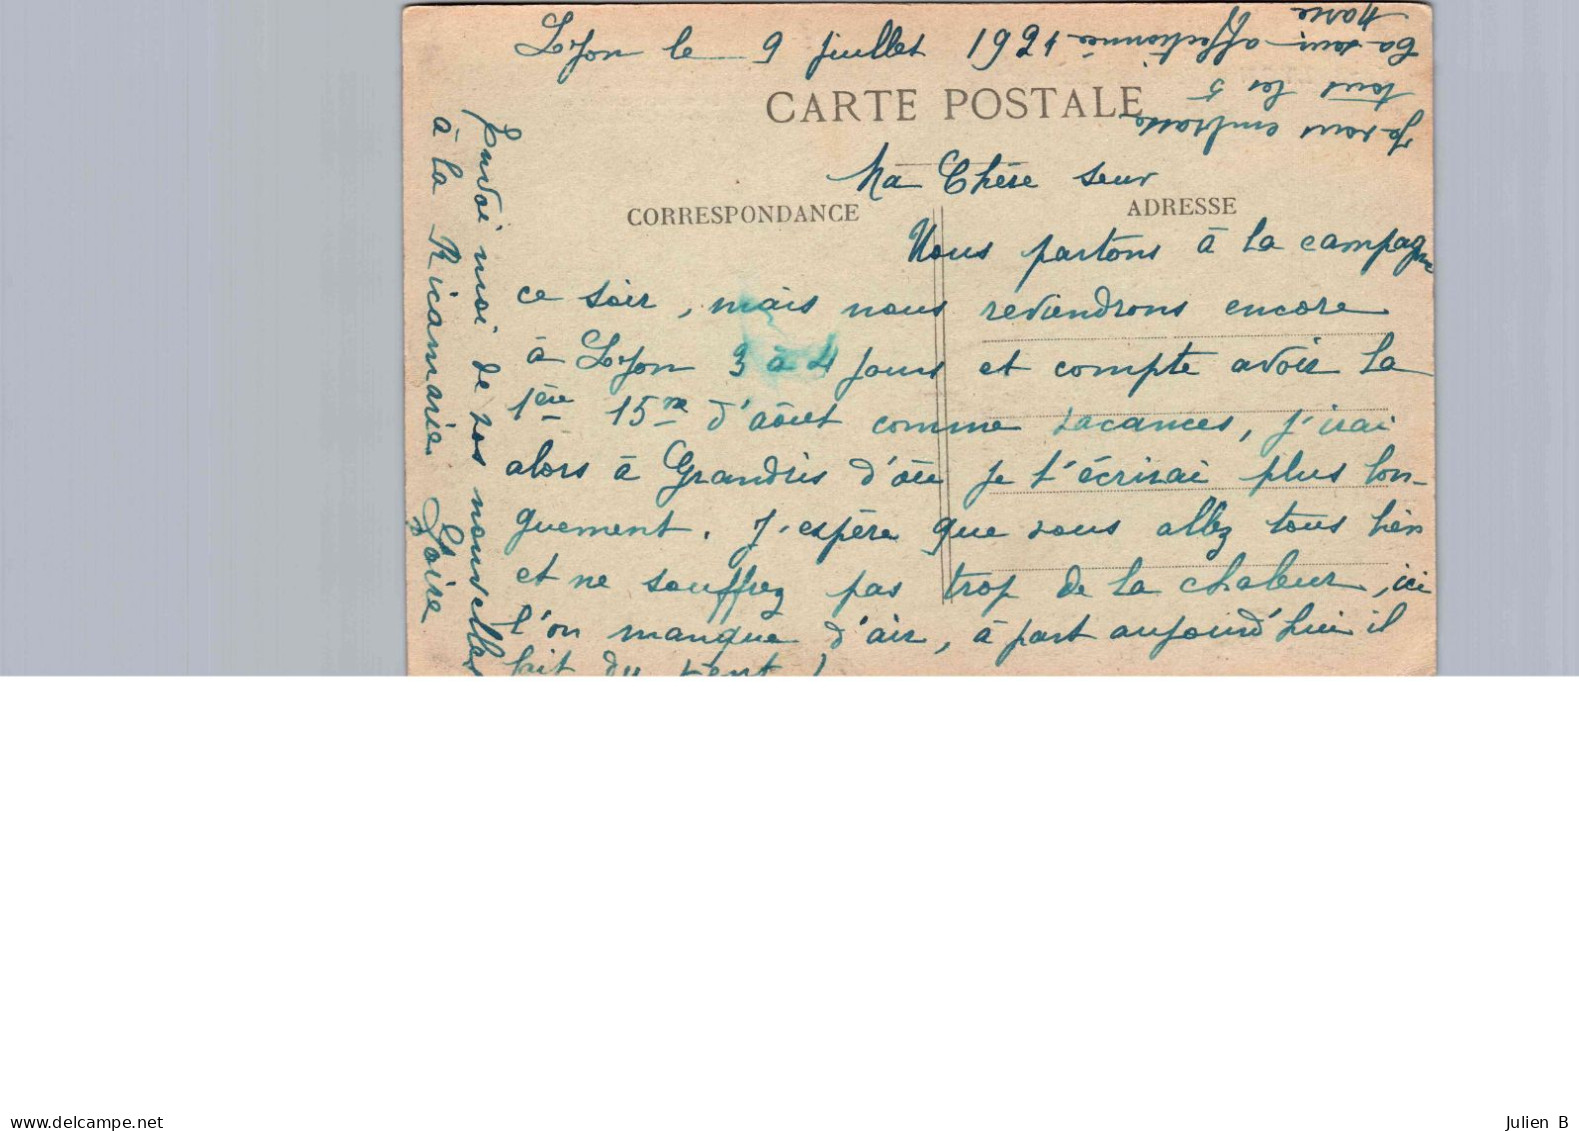 Lyon le 9 juillet 1921
CARTE POSTALE
Ma Chère seur
CORRESPONDANCE
ADRESSE
Nous partons à la campagne
ce soir, mais nous reviendrons encore
à Lyon 3 à 4 jours et compte avoir la
1ère 15ne d'août comme vacances, j'irai
alors à Grandris d'où je t'écrirai plus lon-
guement. J'espère que vous allez tous bien
et ne souffrez pas trop de la chaleur, ici
l'on manque d'air, à part aujourd'hui il
fait du vent !
Envoi moi de vos nouvelles
à la Ricamarie Loire
Je vous embrasse
tous les 5
Ta seur affectionnée
Marie
delcampe.net
Julien B